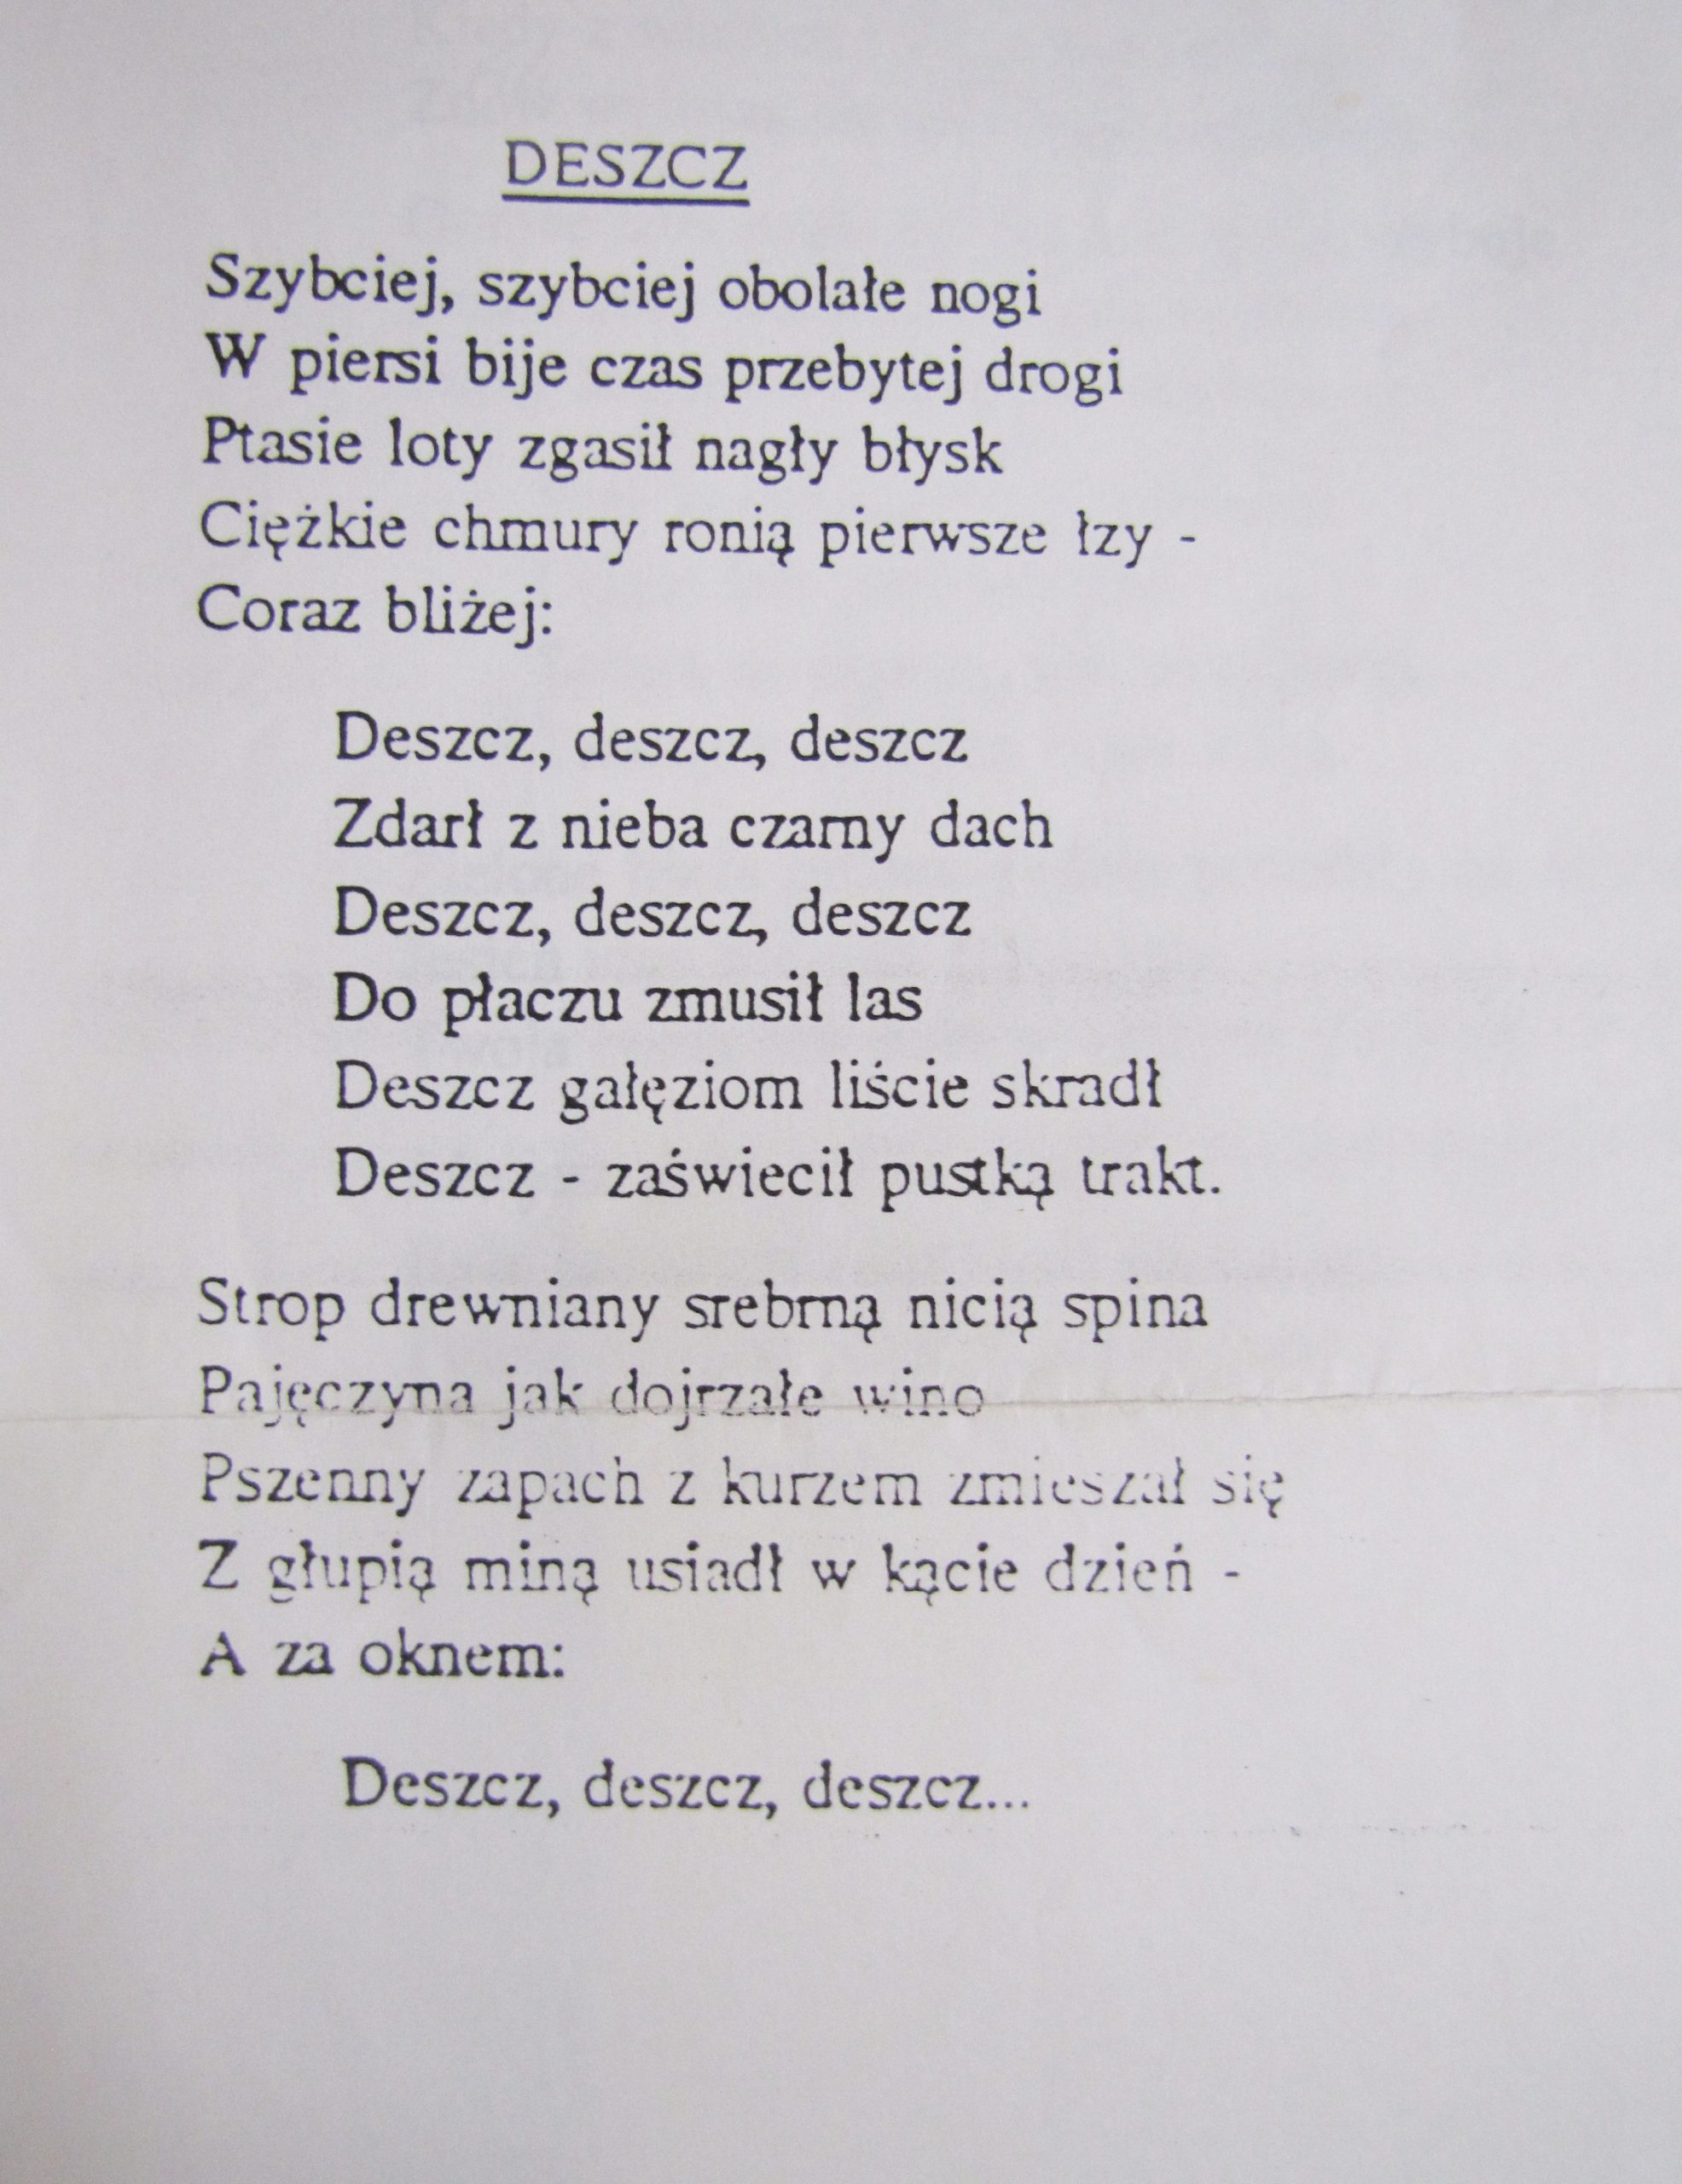 DESZCZ
Szybciej, szybciej obolałe nogi
W piersi bije czas przebytej drogi
Ptasie loty zgasił nagły błysk
Ciężkie chmury ronią pierwsze łzy -
Coraz bliżej:
Deszcz, deszcz, deszcz
Zdarł z nieba czarny dach
Deszcz, deszcz, deszcz
Do płaczu zmusił las
Deszcz gałęziom liście skradł
Deszcz - zaświecił pustką trakt.
Strop drewniany srebrną nicią spina
Pajęczyna jak dojrzałe wino
Pszenny zapach z kurzem zmieszał się
Z głupią miną usiadł w kącie dzień -
A za oknem:
Deszcz, deszcz, deszcz...